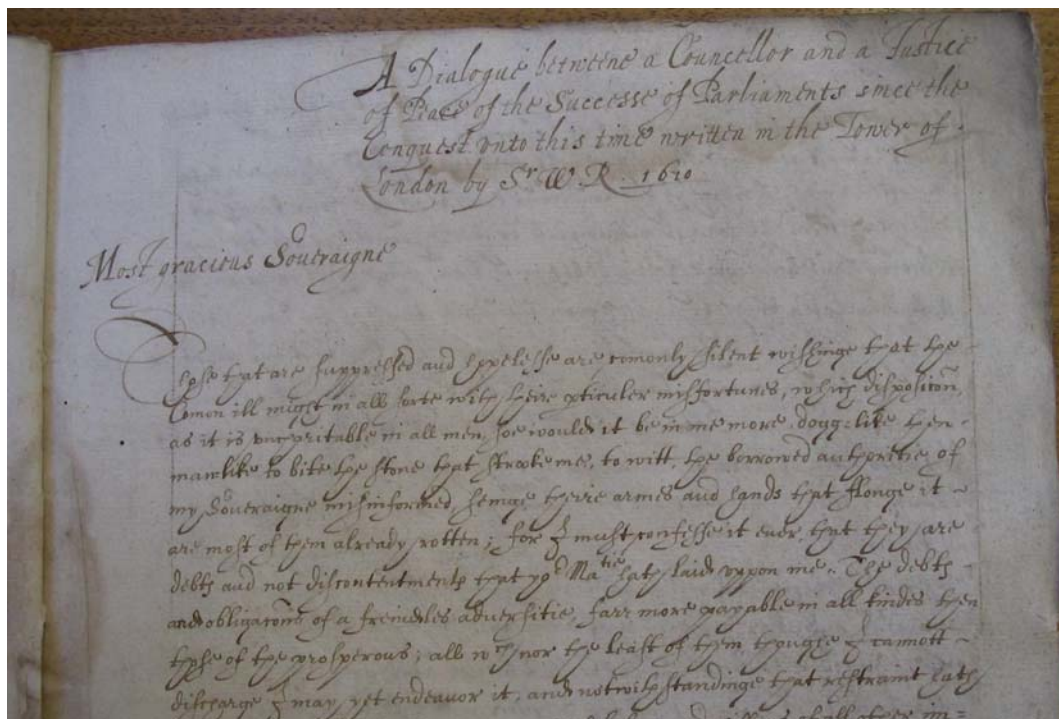 A Dialogue betweene a Councellor and a Justice
of Peace of the Successe of Parliaments since the
Conquest vnto this time written in the Tower of
London by Sr W. R. 1610
Most gracious Soueraigne
Those that are suppressed and hopelesse are comonly silent wishinge that the
Comon ill might in all sorte with theire pticuler misfortunes, which disposicon,
as it is vncharitable in all men, soe would it be in me more dogg-like then
manlike to bite the stone that strooke me, to witt, the borrowed authoritie of
my Soueraigne misinformed, seinge theire armes and hands that flonge it
are most of them already rotten; for I must confesse it euer that they are
debts and not discontentments that yor Matie hath laid vppon me. The debts
and obligacons of a freindles aduersitie, farr more payable in all kindes then
those of the prosperous; all wch nor the least of them though I cannott
discharge I may yet endeavor it, and notwithstandinge that restraint hath
of all other im=